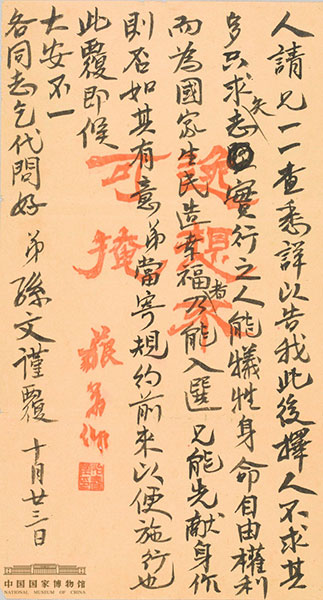 人請兄一一查悉詳以告我此後擇人不求其
多只求矢志實行之人能犧牲身命自由權利
而為國家生民造幸福者乃能入選 兄能先獻身作
則否如其有意弟當寄規約前來以便施行也
此覆即候
大安不一
各同志乞代問好 弟孫文謹覆 十月廿三日
逸想不
可掩
中国国家博物馆
NATIONAL MUSEUM OF CHINA